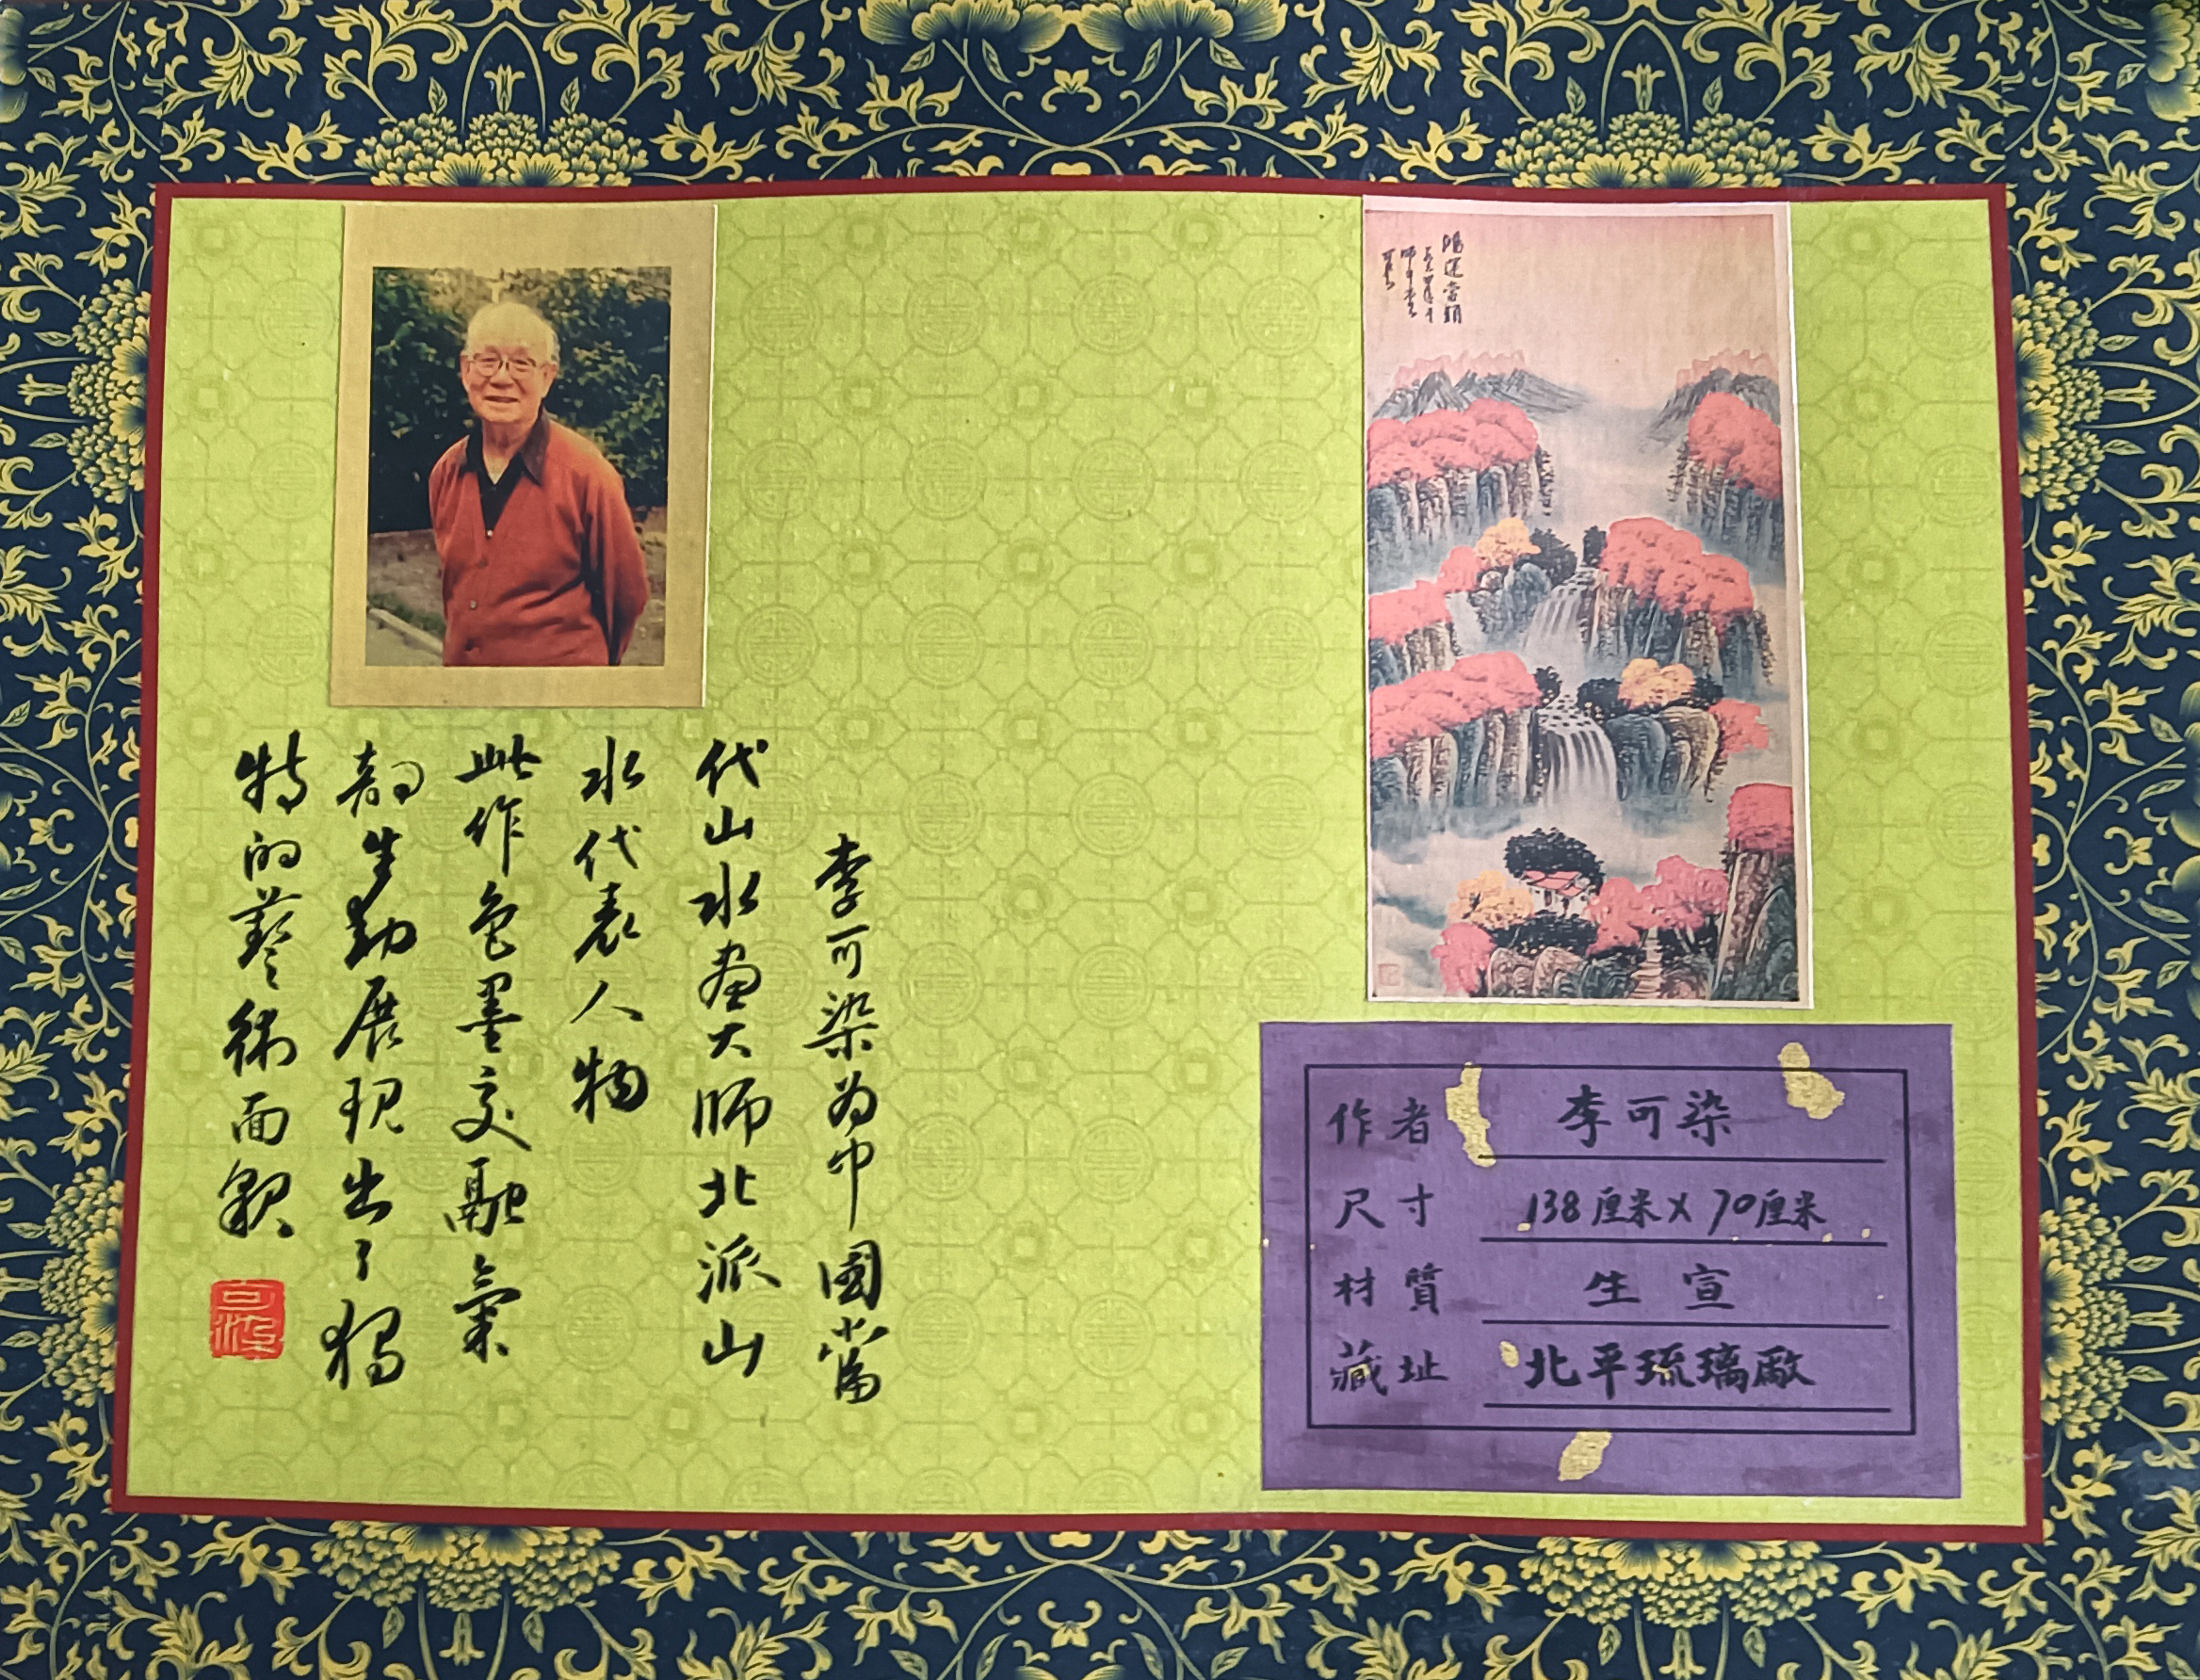 李可染为中國當
代山水畫大师北派山
水代表人物
此作色墨交融氣
韵生動展現出了獨
特的藝術面貌
鴻運當頭
可染
作者 李可染
尺寸 138厘米X70厘米
材質 生宣
藏址 北平琉璃廠